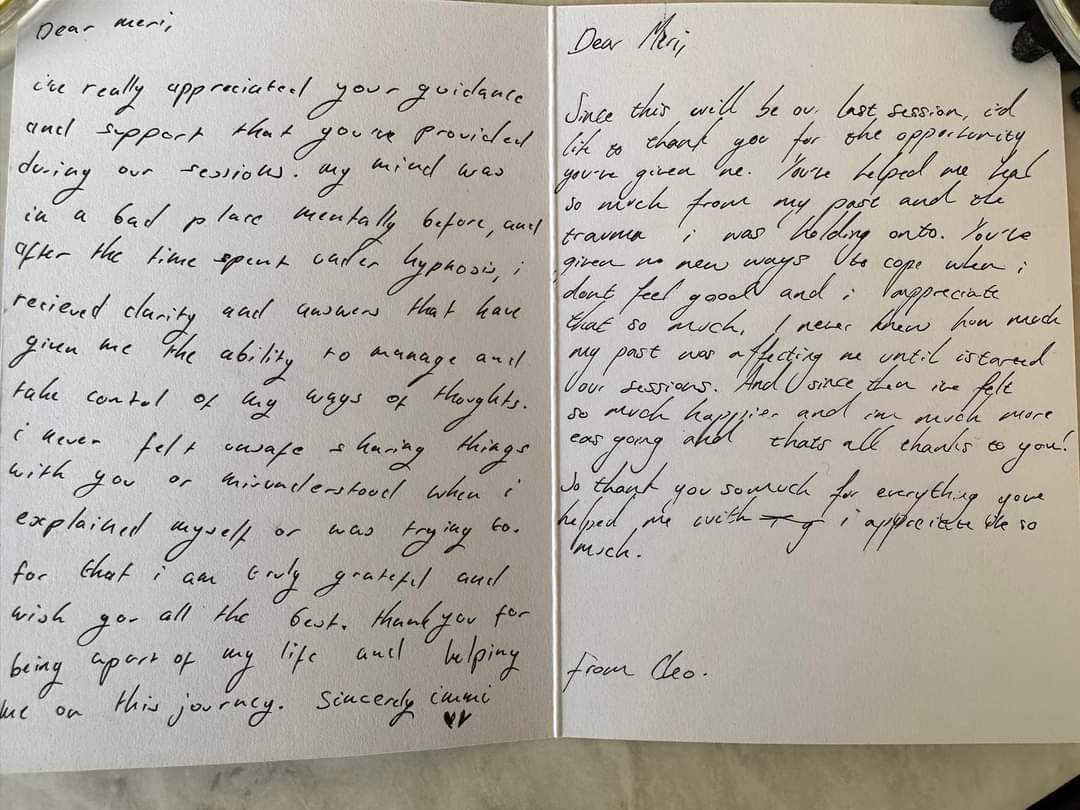 Dear meri,
i've really appreciated your guidance
and support that you've provided
during our sessions. my mind was
in a bad place mentally before, and
after the time spent under hypnosis, i
recieved clarity and answers that have
given me the ability to manage and
take control of my ways of thoughts.
i never felt unsafe sharing things
with you or misunderstood when i
explained myself or was trying to.
for that i am truly grateful and
wish you all the best. thank you for
being apart of my life and helping
me on this journey. Sincerely immi
Dear Meri,
Since this will be our last session, i'd
like to thank you for the opportunity
you've given me. You've helped me heal
so much from my past and the
trauma i was holding onto. You've
given me new ways to cope when i
dont feel good and i appreciate
that so much, I never knew how much
my past was affecting me until i started
our sessions. And since then ive felt
so much happier and im much more
eas going and thats all thanks to you!
So thank you so much for everything youve
helped me with i appreciate so
much.
From Cleo.